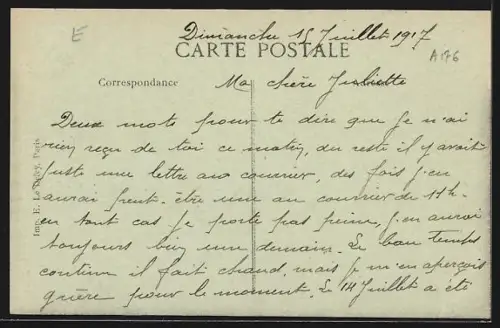 E
Dimanche 15 Juillet 1917
CARTE POSTALE
A176
Correspondance
Ma chère Juliette
Deux mots pour te dire que je n'ai
rien reçu de toi ce matin, du reste il y avait
juste une lettre au courrier, des fois j'en
aurai peut-être une au courrier de 11h.
en tout cas je porte pas peine, j'en aurai
toujours bien une demain. Le beau temps
continu il fait chaud, mais je m'en aperçois
guère pour le moment. Le 14 Juillet a été
Imp. E. Le Deley, Paris